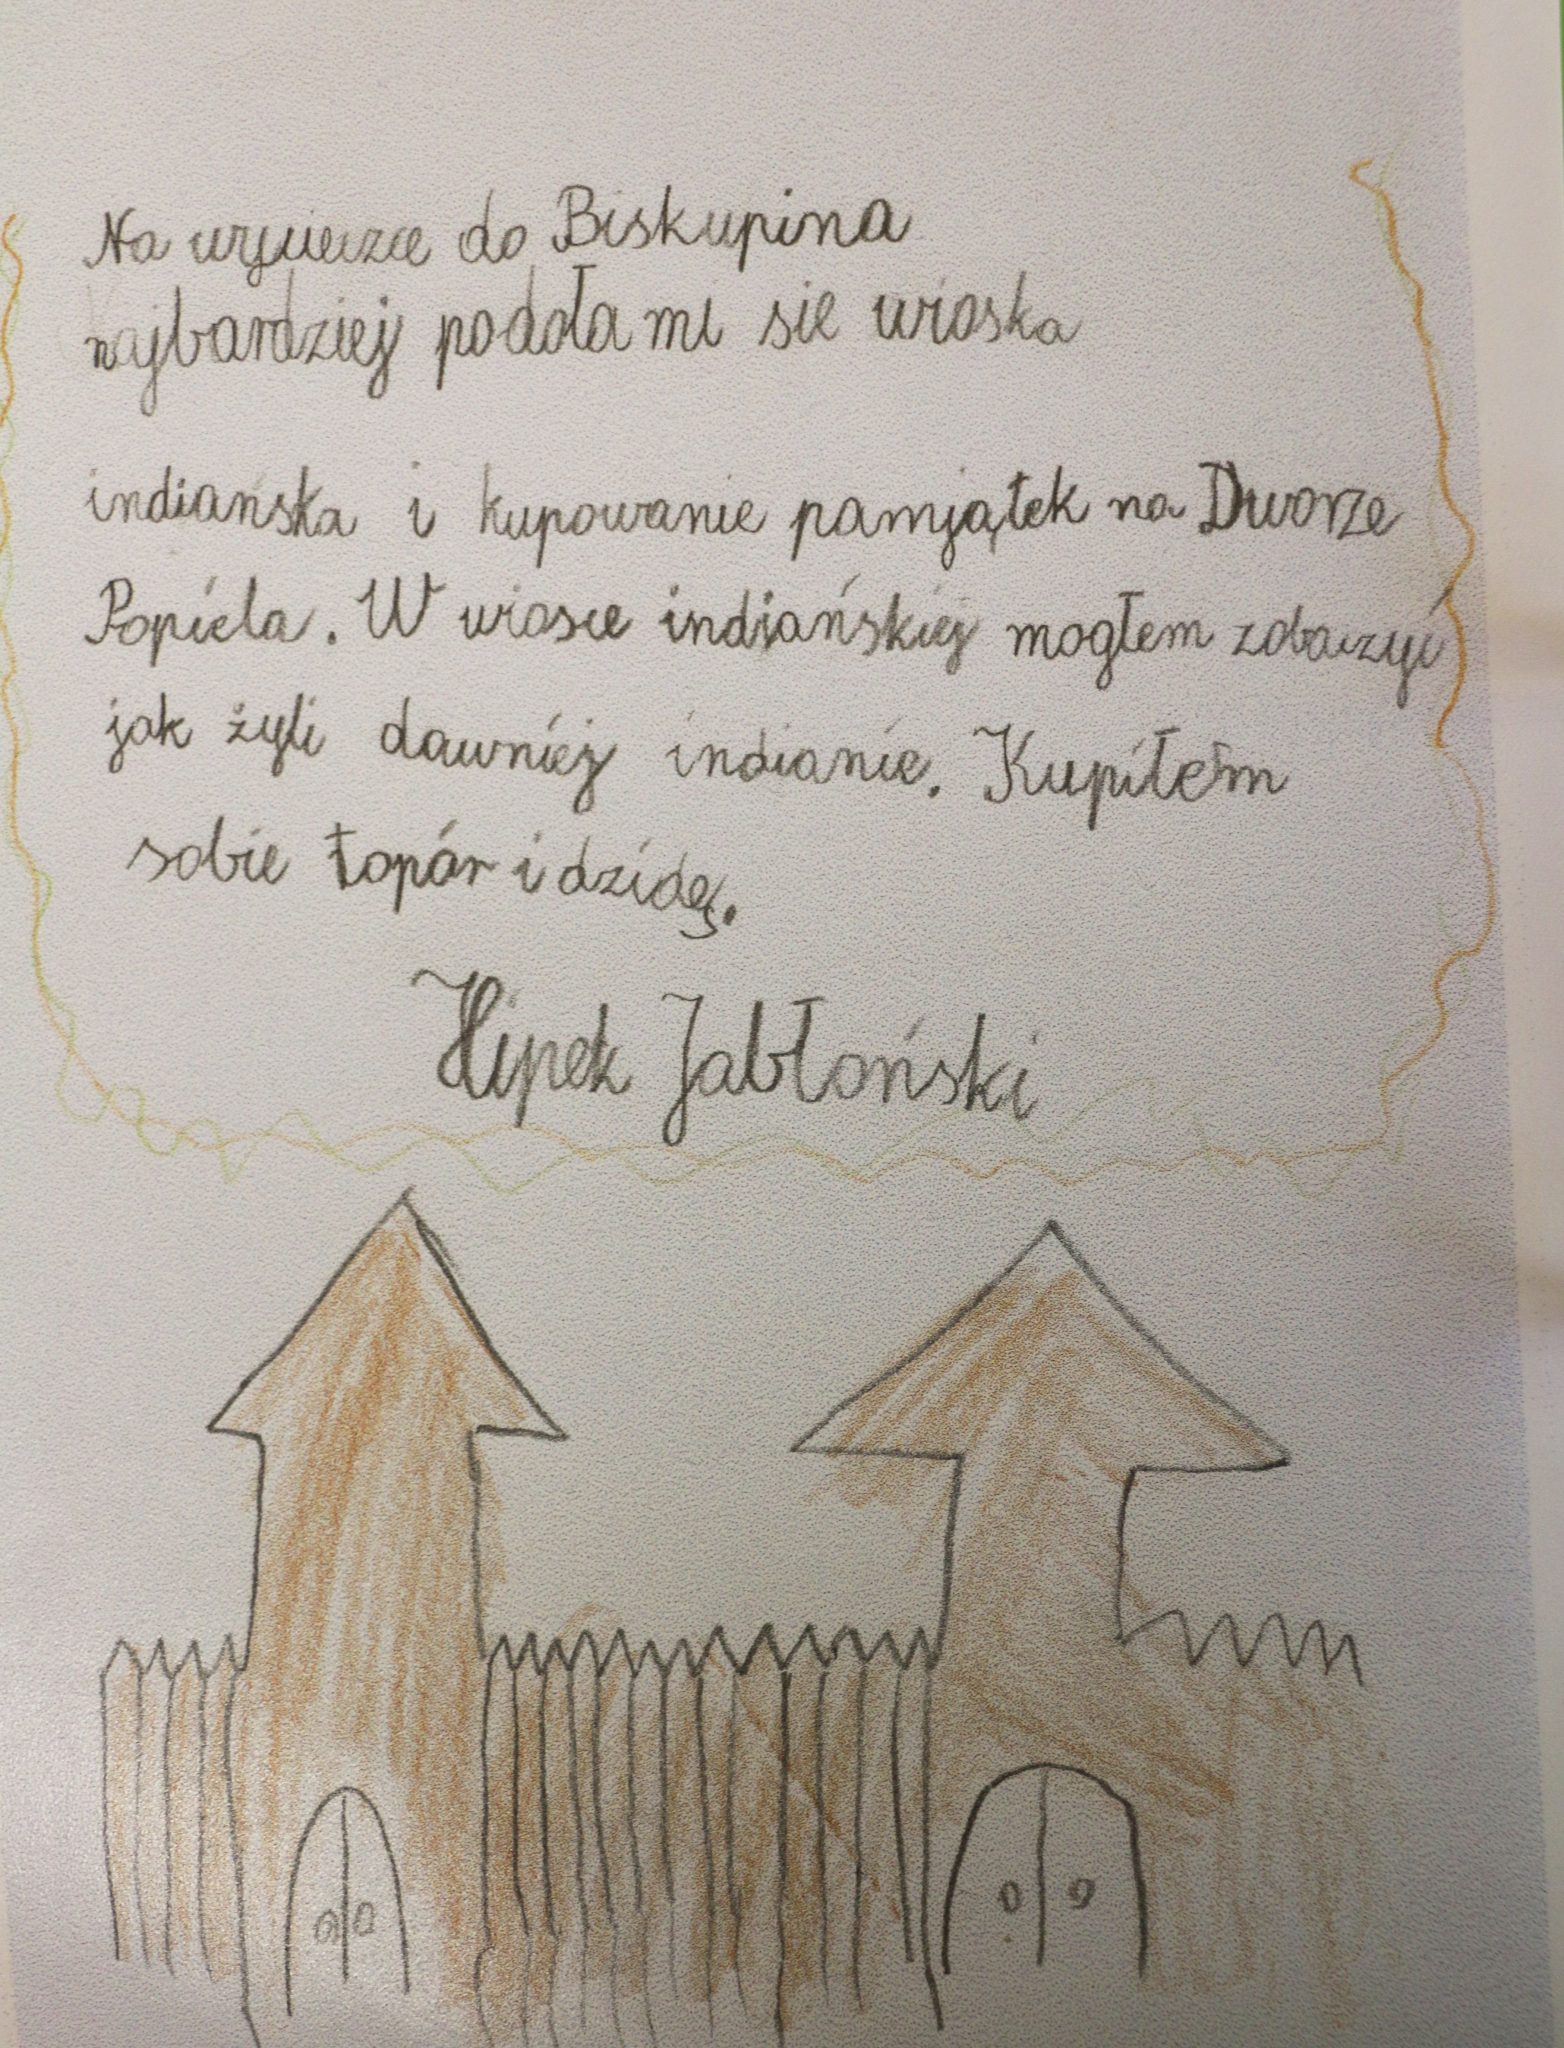 Na wycieczce do Biskupina
najbardziej podoła mi sie wioska
indiańska i kupowanie pamjątek na Dworze
Popiela. W wiosce indiańskiej mogłem zobaczyć
jak żyli dawniej indianie. Kupiłem
sobie topór i dzidę.
Hipek Jabłoński